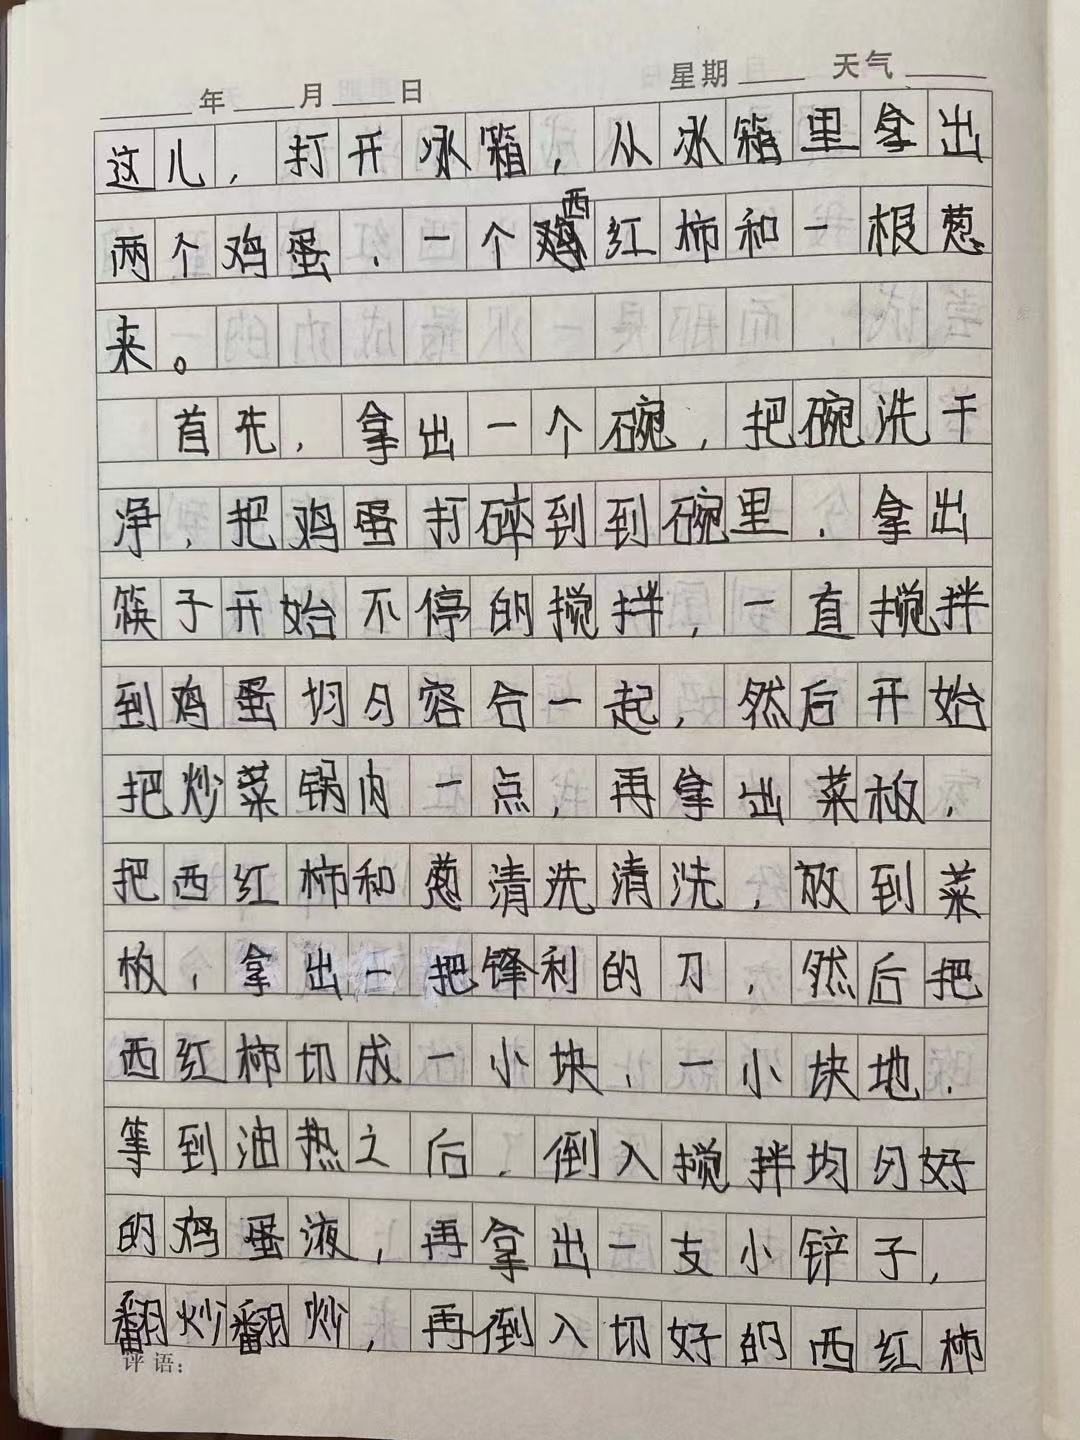 年 月 日 星期 天气
这儿，打开冰箱，从冰箱里拿出
两个鸡蛋、一个西红柿和一根葱
来。
首先，拿出一个碗，把碗洗干
净，把鸡蛋打碎到到碗里，拿出
筷子开始不停的搅拌，一直搅拌
到鸡蛋均匀容合一起，然后开始
把炒菜锅内一点，再拿出菜板，
把西红柿和葱清洗清洗，放到菜
板，拿出一把锋利的刀，然后把
西红柿切成一小块、一小块地，
等到油热之后，倒入搅拌均匀好
的鸡蛋液，再拿出一支小铲子，
翻炒翻炒，再倒入切好的西红柿
评语：